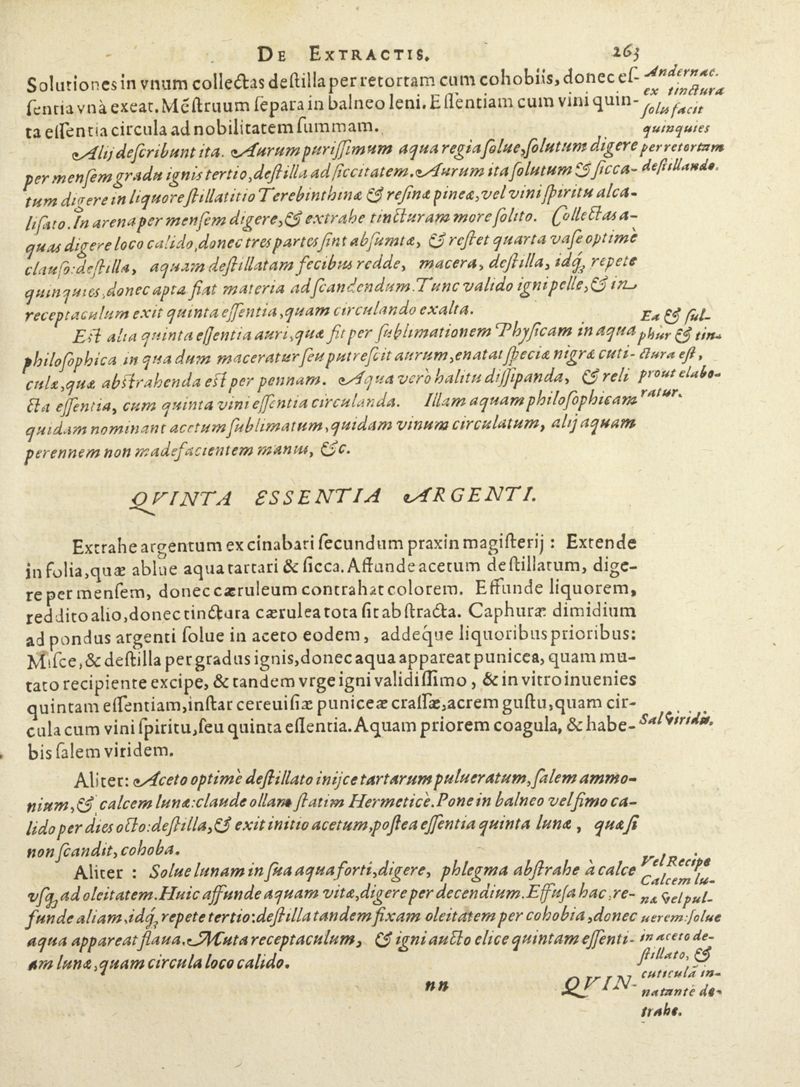 DE EXTRACTIS. 263
Solutiones in vnum collectas destilla per retortam cum cohobiis, donec es-
sentia vnà exeat. Mēstruum separa in balneo leni. Essentiam cum vini quin-
ta essentia circula ad nobilitatem summam.
Andernac.
ex tinctura
solu facit
quinquies
per retortam
destillando.
Alij describunt ita. Aurum purissimum aqua regia solue, solutum digere
per mensem gradu ignis tertio, destilla ad siccitatem. Aurum ita solutum & sicca-
tum digere in liquore stillatitio Terebinthinæ & resinæ pineæ, vel vini spiritu alca-
lisato. In arena per mensem digere, & extrahe tincturam more solito. Collectas a-
quas digere loco calido, donec tres partes sint absumtæ, & restet quarta vase optimè
clauso: destilla, aquam destillatam fecibus redde, macera, destilla, idq; repete
quinquies, donec apta fiat materia ad scandendum. Tunc valido igni pelle, & in
receptaculum exit quinta essentia, quam circulando exalta.
Est alia quinta essentia auri, quæ fit per sublimationem Physicam in aqua
philosophica in qua dum maceratur seu putrescit aurum, enatat specia nigræ cuti-
culæ, quæ abstrahenda est per pennam. Aqua verò halitu dissipanda, & reli
cta essentia, cum quinta vini essentia circulanda. Illam aquam philosophicam
quidam nominant acetum sublimatum, quidam vinum circulatum, alij aquam
perennem non madefacientem manus, &c.
Ea & sul-
phur & tin-
ctura est,
prout elabo-
ratur.
QVINTA ESSENTIA ARGENTI.
Extrahe argentum ex cinabari secundum praxin magisterij: Extende
in folia, quæ ablue aqua tartari & sicca. Affunde acetum destillatum, dige-
re per mensem, donec cæruleum contrahat colorem. Effunde liquorem,
reddito alio, donec tinctura cærulea tota sit abstracta. Caphuræ dimidium
ad pondus argenti solue in aceto eodem, addeque liquoribus prioribus:
Misce, & destilla per gradus ignis, donec aqua appareat punicea, quam mu-
tato recipiente excipe, & tandem vrge igni validissimo, & in vitro inuenies
quintam essentiam, instar cereuisiæ puniceæ crassæ, acrem gustu, quam cir-
cula cum vini spiritu, seu quinta essentia. Aquam priorem coagula, & habe-
bis salem viridem.
Sal viridis.
Aliter: Aceto optimè destillato inijce tartarum pulueratum, salem ammo-
nium, & calcem lunæ: claude ollam statim Hermeticè. Pone in balneo vel fimo ca-
lido per dies octo: destilla, & exit initio acetum, postea essentia quinta lunæ, quæ si
non scandit, cohoba.
Aliter: Solue lunam in sua aqua forti, digere, phlegma abstrahe à calce
vsq; ad oleitatem. Huic affunde aquam vitæ, digere per decendium. Effusa hac, re-
funde aliam, idq; repete tertio: destilla tandem fixam oleitatem per cohobia, donec
aqua appareat flaua. Muta receptaculum, & igni aucto elice quintam essenti-
am lunæ, quam circula loco calido.
Vel Recipe
Calcem lu-
næ vel pul-
uerem: solue
in aceto de-
stillato, &
cuticulā in-
natantē de-
trahe.
nn QVIN-